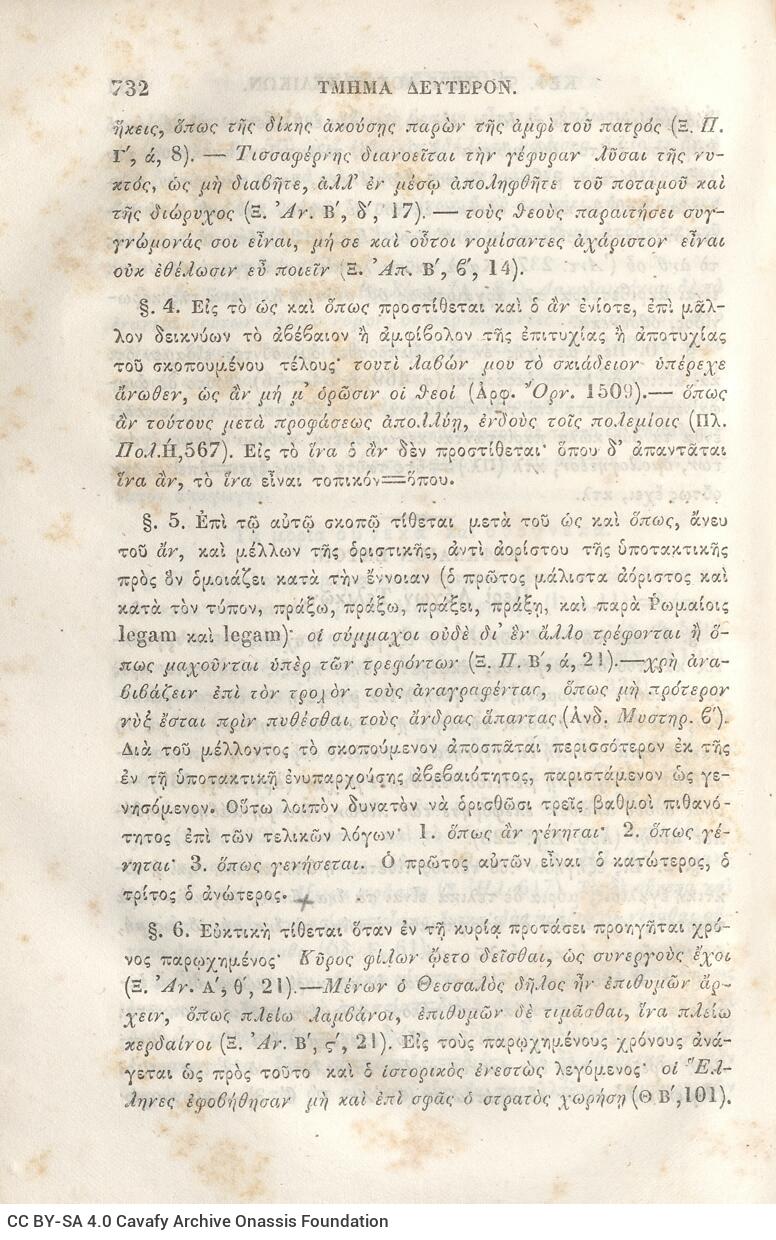 732 ΤΜΗΜΑ ΔΕΥΤΕΡΟΝ.
ἥκεις, ὅπως τῆς δίκης ἀκούσῃς παρὼν τῆς ἀμφὶ τοῦ πατρός (Ξ. Π.
Γ΄, ά, 8). — Τισσαφέρνης διανοεῖται τὴν γέφυραν λῦσαι τῆς νυ-
κτός, ὡς μὴ διαβῆτε, ἀλλ' ἐν μέσῳ ἀποληφθῆτε τοῦ ποταμοῦ καὶ
τῆς διώρυχος (Ξ. Ἀν. Β΄, δ΄, 17). — τοὺς θεοὺς παραιτήσει συγ-
γνώμονάς σοι εἶναι, μή σε καὶ οὗτοι νομίσαντες ἀχάριστον εἶναι
οὐκ ἐθέλωσιν εὖ ποιεῖν (Ξ. Ἀπ. Β΄, β΄, 14).
§. 4. Εἰς τὸ ὡς καὶ ὅπως προστίθεται καὶ ὁ ἂν ἐνίοτε, ἐπὶ μᾶλ-
λον δεικνύων τὸ ἀβέβαιον ἢ ἀμφίβολον τῆς ἐπιτυχίας ἢ ἀποτυχίας
τοῦ σκοπουμένου τέλους· τουτὶ λαβών μου τὸ σκιάδειον ὑπέρεχε
ἄνωθεν, ὡς ἂν μή μ' ὁρῶσιν οἱ θεοί (Ἀρφ. Ὄρν. 1509).— ὅπως
ἂν τούτους μετὰ προφάσεως ἀπολλύῃ, ἐνδοὺς τοῖς πολεμίοις (Πλ.
Πολ.Ή,567). Εἰς τὸ ἵνα ὁ ἂν δὲν προστίθεται· ὅπου δ' ἀπαντᾶται
ἵνα ἄν, τὸ ἵνα εἶναι τοπικόν=ὅπου.
§. 5. Ἐπὶ τῷ αὐτῷ σκοπῷ τίθεται μετὰ τοῦ ὡς καὶ ὅπως, ἄνευ
τοῦ ἄν, καὶ μέλλων τῆς ὁριστικῆς, ἀντὶ ἀορίστου τῆς ὑποτακτικῆς
πρὸς ὃν ὁμοιάζει κατὰ τὴν ἔννοιαν (ὁ πρῶτος μάλιστα ἀόριστος καὶ
κατὰ τὸν τύπον, πράξω, πράξω, πράξει, πράξῃ, καὶ παρὰ Ῥωμαίοις
legam καὶ legam)· οἱ σύμμαχοι οὐδὲ δι' ἓν ἄλλο τρέφονται ἢ ὅ-
πως μαχοῦνται ὑπὲρ τῶν τρεφόντων (Ξ. Π. Β΄, ά, 21).—χρὴ ἀνα-
βιβάζειν ἐπὶ τὸν τροχὸν τοὺς ἀναγραφέντας, ὅπως μὴ πρότερον
νὺξ ἔσται πρὶν πυθέσθαι τοὺς ἄνδρας ἅπαντας (Ἀνδ. Μυστηρ. β΄).
Διὰ τοῦ μέλλοντος τὸ σκοπούμενον ἀποσπᾶται περισσότερον ἐκ τῆς
ἐν τῇ ὑποτακτικῇ ἐνυπαρχούσης ἀβεβαιότητος, παριστάμενον ὡς γε-
νησόμενον. Οὕτω λοιπὸν δυνατὸν νὰ ὁρισθῶσι τρεῖς βαθμοὶ πιθανό-
τητος ἐπὶ τῶν τελικῶν λόγων· 1. ὅπως ἂν γένηται· 2. ὅπως γέ-
νηται· 3. ὅπως γενήσεται. Ὁ πρῶτος αὐτῶν εἶναι ὁ κατώτερος, ὁ
τρίτος ὁ ἀνώτερος.
§. 6. Εὐκτικὴ τίθεται ὅταν ἐν τῇ κυρίᾳ προτάσει προηγῆται χρό-
νος παρῳχημένος· Κῦρος φίλων ᾤετο δεῖσθαι, ὡς συνεργοὺς ἔχοι
(Ξ. Ἀν. Α΄, θ΄, 21).—Μένων ὁ Θεσσαλὸς δῆλος ἦν ἐπιθυμῶν ἄρ-
χειν, ὅπως πλείω λαμβάνοι, ἐπιθυμῶν δὲ τιμᾶσθαι, ἵνα πλείω
κερδαίνοι (Ξ. Ἀν. Β΄, ς΄, 21). Εἰς τοὺς παρῳχημένους χρόνους ἀνά-
γεται ὡς πρὸς τοῦτο καὶ ὁ ἱστορικὸς ἐνεστὼς λεγόμενος· οἱ Ἕλ-
ληνες ἐφοβήθησαν μὴ καὶ ἐπὶ σφᾶς ὁ στρατὸς χωρήσῃ (Θ Β΄,101).
CC BY-SA 4.0 Cavafy Archive Onassis Foundation